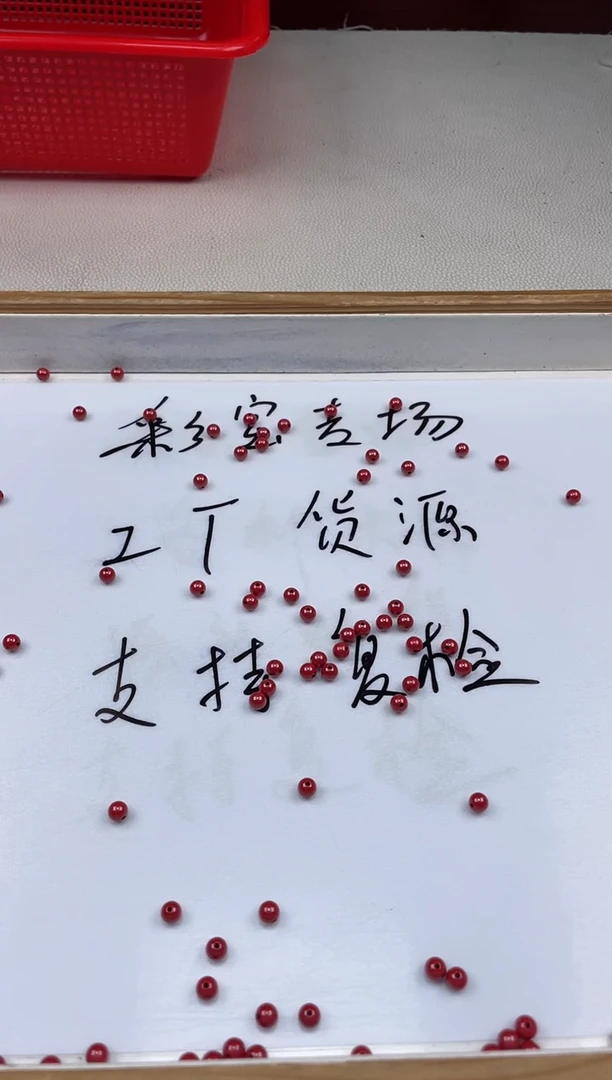 彩宝专场
工厂货源
支持复检